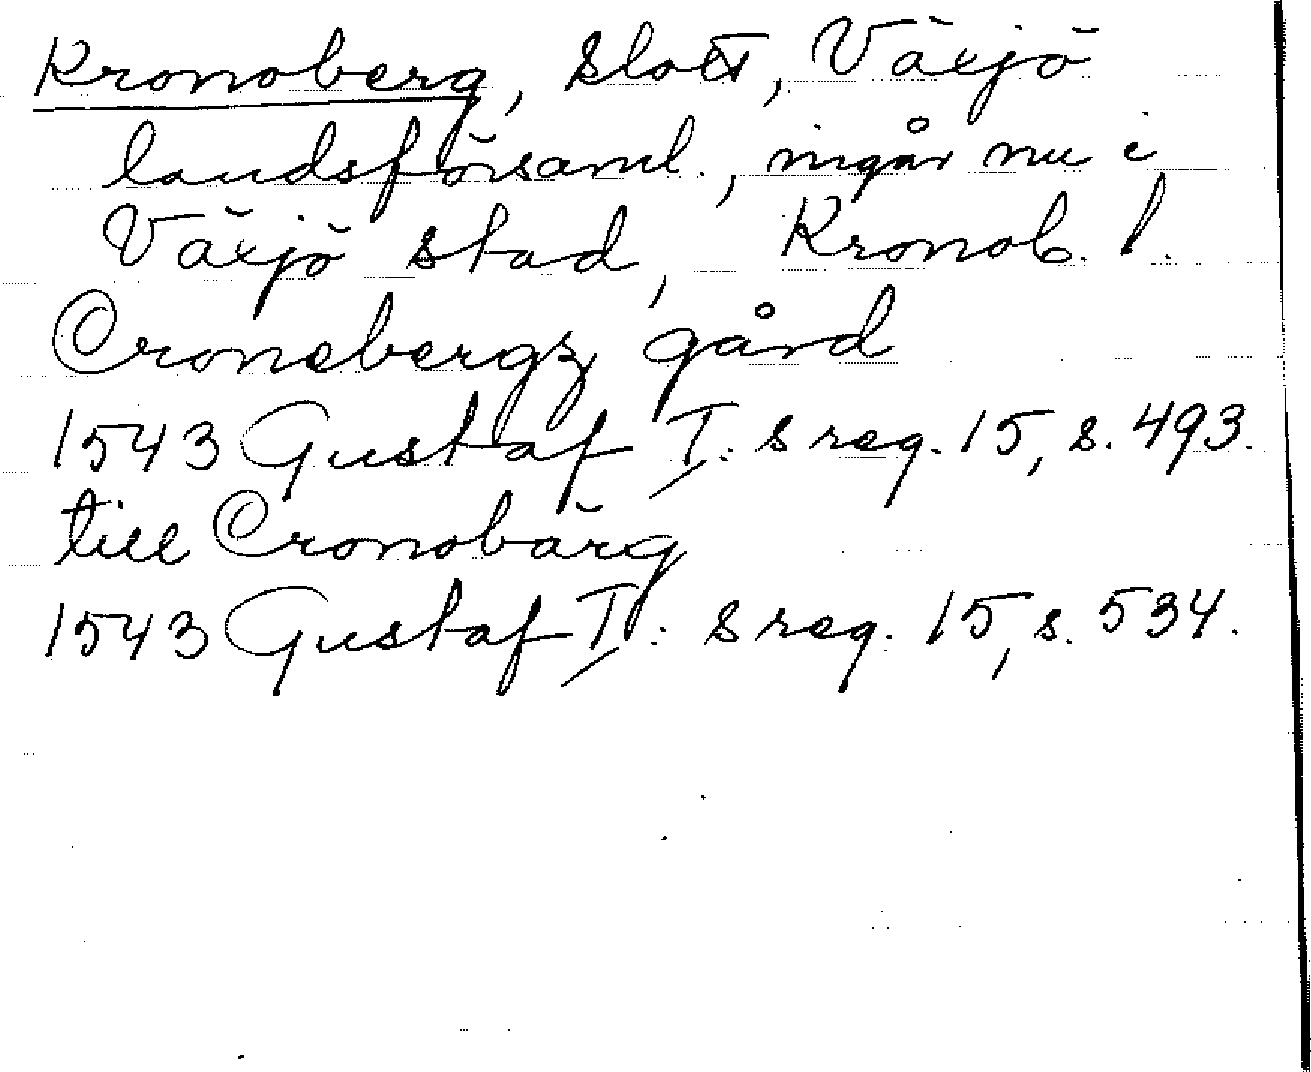 Kronoberg, slott, Växjö
landsförsaml., ingår nu i
Växjö stad, Kronob. l.
Cronebergz gård
1543 Gustaf I: s reg. 15, s. 493.
till Cronobärg
1543 Gustaf I: s reg. 15, s. 534.